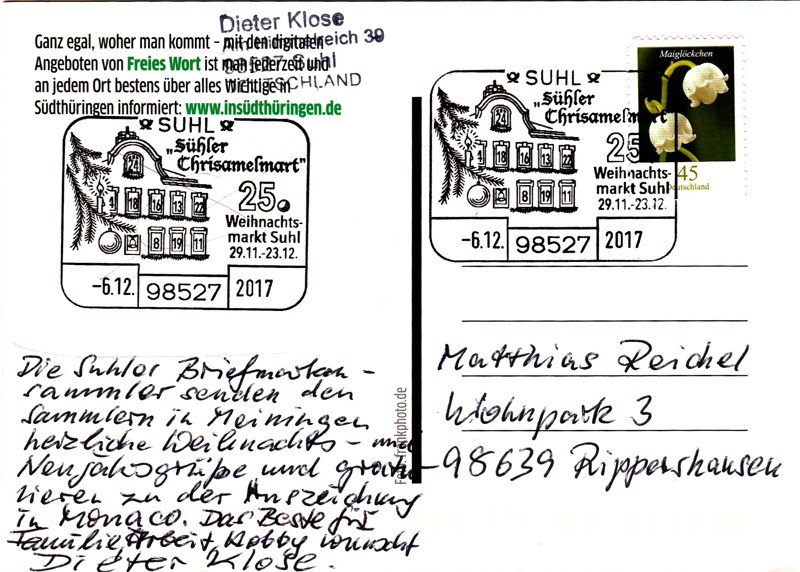 Dieter Klose
reich 39
98527 Suhl
DEUTSCHLAND
Ganz egal, woher man kommt – mit den digitalen
Angeboten von Freies Wort ist man jederzeit und
an jedem Ort bestens über alles Wichtige in
Südthüringen informiert: www.insüdthüringen.de
SUHL
„Sühler
Chrisamelmart"
24
1 18 16 13 22
8 19 11
25.
Weihnachts-
markt Suhl
29.11.-23.12.
-6.12. 98527 2017
Maiglöckchen
45
Deutschland
SUHL
„Sühler
Chrisamelmart"
24
1 18 16 13 22
8 19 11
25.
Weihnachts-
markt Suhl
29.11.-23.12.
-6.12. 98527 2017
Die Suhler Briefmarken-
sammler senden den
Sammlern in Meiningen
herzliche Weihnachts- und
Neujahrsgrüße und gratu-
lieren zu der Auszeichnung
in Monaco. Das Beste für
Familie Arbeit, Hobby wünscht
Dieter Klose.
frankphoto.de
Matthias Reichel
Wohnpark 3
98639 Rippershausen